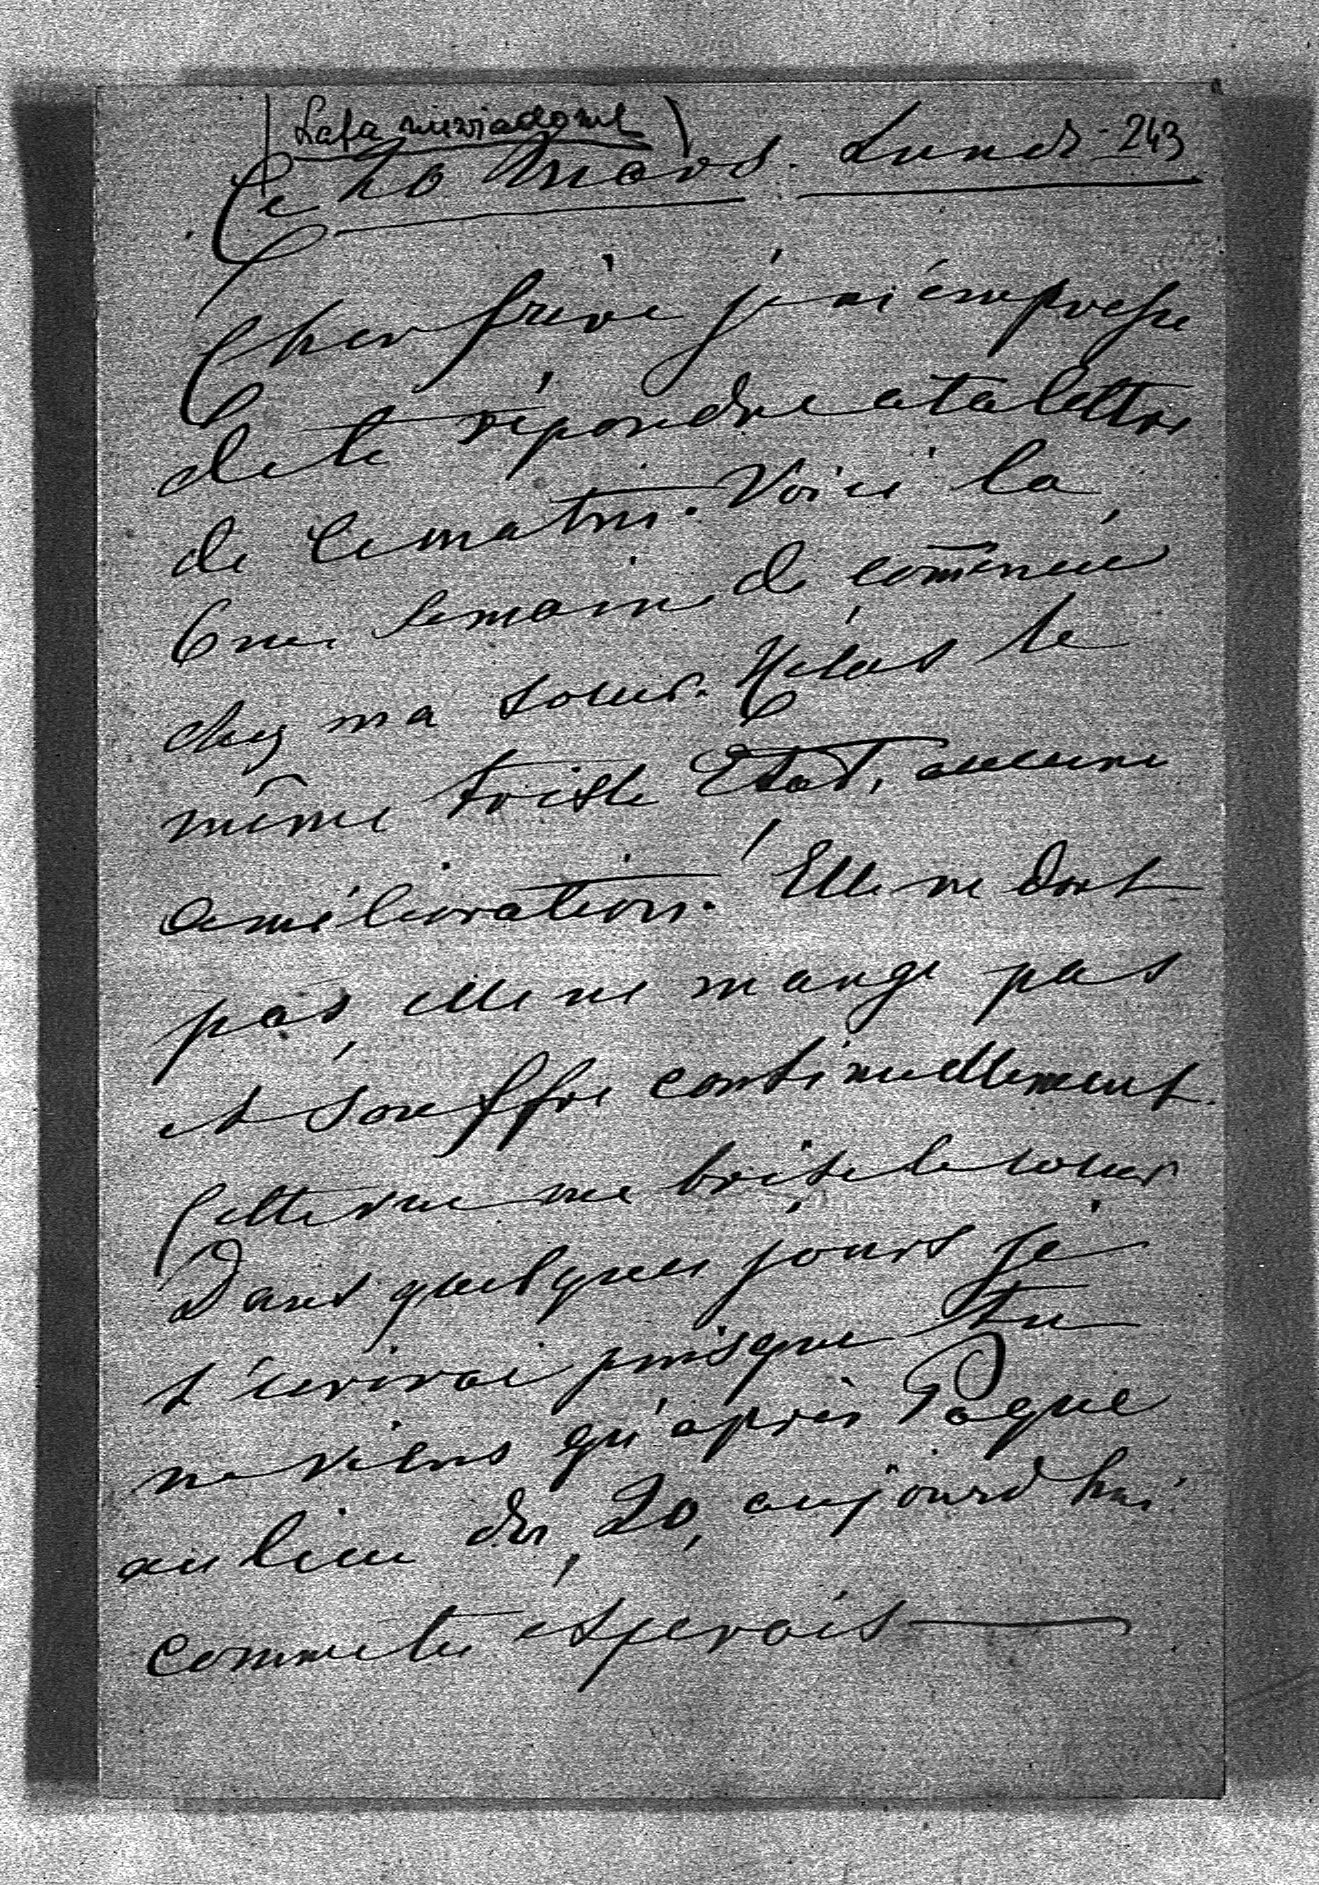 Ce 20 Mars. Lundi - 243
Cher frère je m'empresse
de te répondre a ta lettre
de ce matin. Voici la
6me semaine de commencé
chez ma soeur. Hélas le
même triste Etat, aucune
amélioration! Elle ne dort
pas elle ne mange pas
et souffre continuellement.
Cette vue me brise le coeur
Dans quelques jours je
t'ecrirai puisque tu
ne viens qu'après Paque
au lieu du 20, aujourd'hui
comme tu esperais